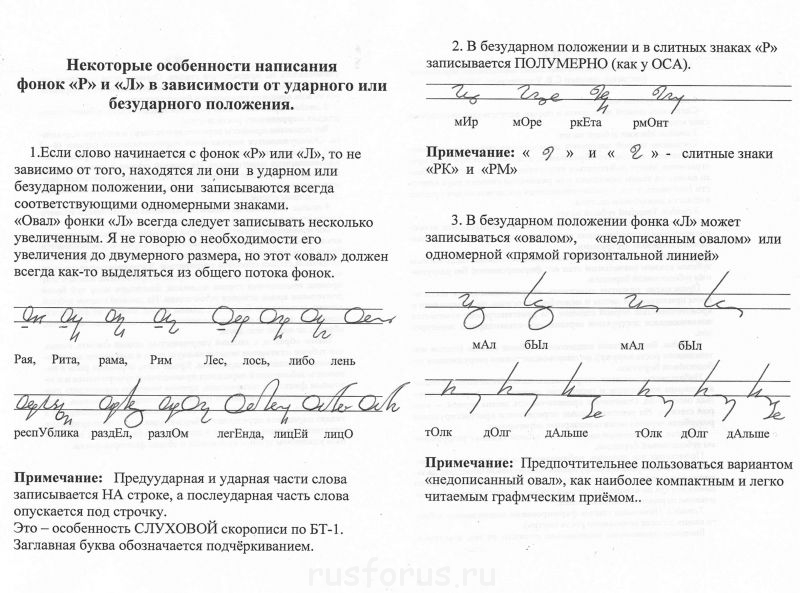 Некоторые особенности написания
фонок «Р» и «Л» в зависимости от ударного или
безударного положения.
1.Если слово начинается с фонок «Р» или «Л», то не
зависимо от того, находятся ли они в ударном или
безударном положении, они записываются всегда
соответствующими одномерными знаками.
«Овал» фонки «Л» всегда следует записывать несколько
увеличенным. Я не говорю о необходимости его
увеличения до двумерного размера, но этот «овал» должен
всегда как-то выделяться из общего потока фонок.
Рая, Рита, рама, Рим Лес, лось, либо лень
респУблика раздЕл, разлОм легЕнда, лицЕй лицО
Примечание: Предуударная и ударная части слова
записывается НА строке, а послеударная часть слова
опускается под строчку.
Это – особенность СЛУХОВОЙ скорописи по БТ-1.
Заглавная буква обозначается подчёркиванием.
2. В безударном положении и в слитных знаках «Р»
записывается ПОЛУМЕРНО (как у ОСА).
мИр мОре ркЕта рмОнт
Примечание: « » и « » - слитные знаки
«РК» и «РМ»
3. В безударном положении фонка «Л» может
записываться «овалом», «недописанным овалом» или
одномерной «прямой горизонтальной линией»
мАл бЫл мАл бЫл
тОлк дОлг дАльше тОлк дОлг дАльше
Примечание: Предпочтительнее пользоваться вариантом
«недописанный овал», как наиболее компактным и легко
читаемым графмческим приёмом..
rusforus.ru